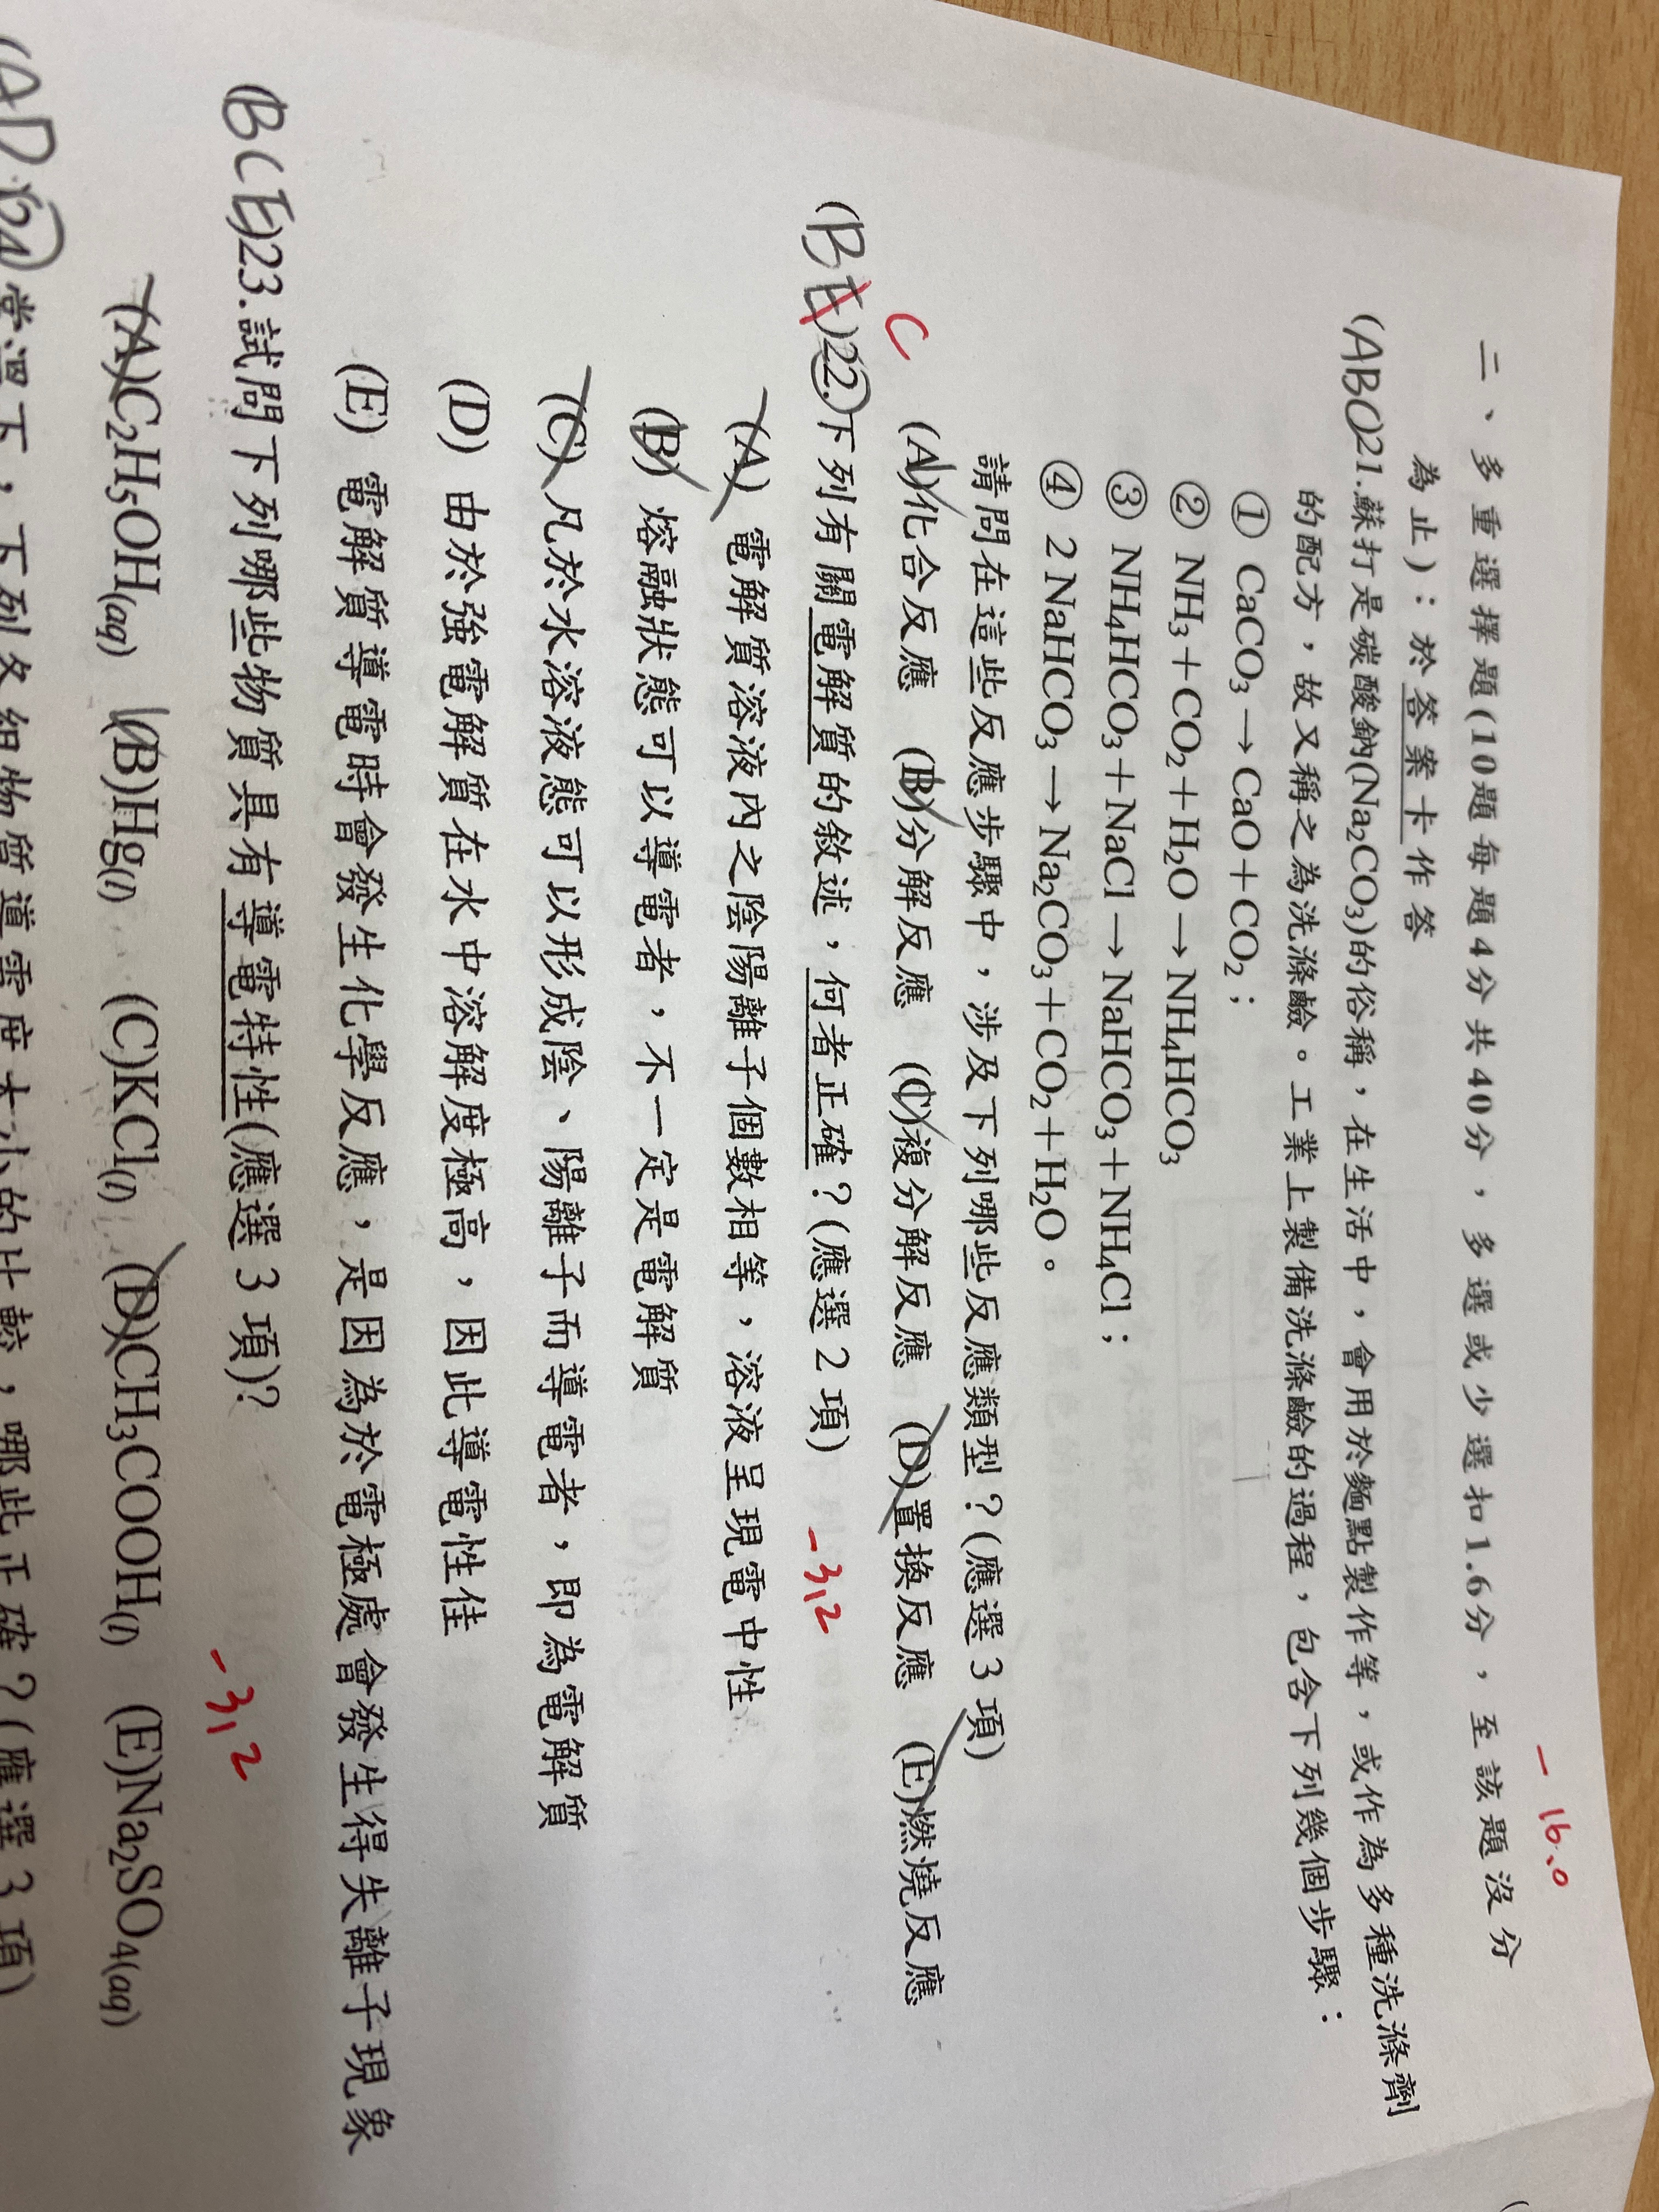 -16.0
二、多重選擇題(10題每題4分共40分，多選或少選扣1.6分，至該題沒分
為止)：於答案卡作答
(ABC)21.蘇打是碳酸鈉(Na₂CO₃)的俗稱，在生活中，會用於麵點製作等，或作為多種洗滌劑
的配方，故又稱之為洗滌鹼。工業上製備洗滌鹼的過程，包含下列幾個步驟：
① CaCO₃→CaO＋CO₂；
② NH₃＋CO₂＋H₂O→NH₄HCO₃
③ NH₄HCO₃＋NaCl→NaHCO₃＋NH₄Cl；
④ 2 NaHCO₃→Na₂CO₃＋CO₂＋H₂O。
請問在這些反應步驟中，涉及下列哪些反應類型？(應選3項)
(A)化合反應 (B)分解反應 (C)複分解反應 (D)置換反應 (E)燃燒反應
C
(BE)22.下列有關電解質的敘述，何者正確？(應選2項) -3.2
(A) 電解質溶液內之陰陽離子個數相等，溶液呈現電中性
(B) 熔融狀態可以導電者，不一定是電解質
(C) 凡於水溶液態可以形成陰、陽離子而導電者，即為電解質
(D) 由於強電解質在水中溶解度極高，因此導電性佳
(E) 電解質導電時會發生化學反應，是因為於電極處會發生得失離子現象
(BCE)23.試問下列哪些物質具有導電特性(應選3項)？ -3.2
(A)C₂H₅OH(aq) (B)Hg(l) (C)KCl(l) (D)CH₃COOH(l) (E)Na₂SO₄(aq)
(AD 24 常溫下，下列各組物質導電度大小的比較，哪些正確？(應選3項)